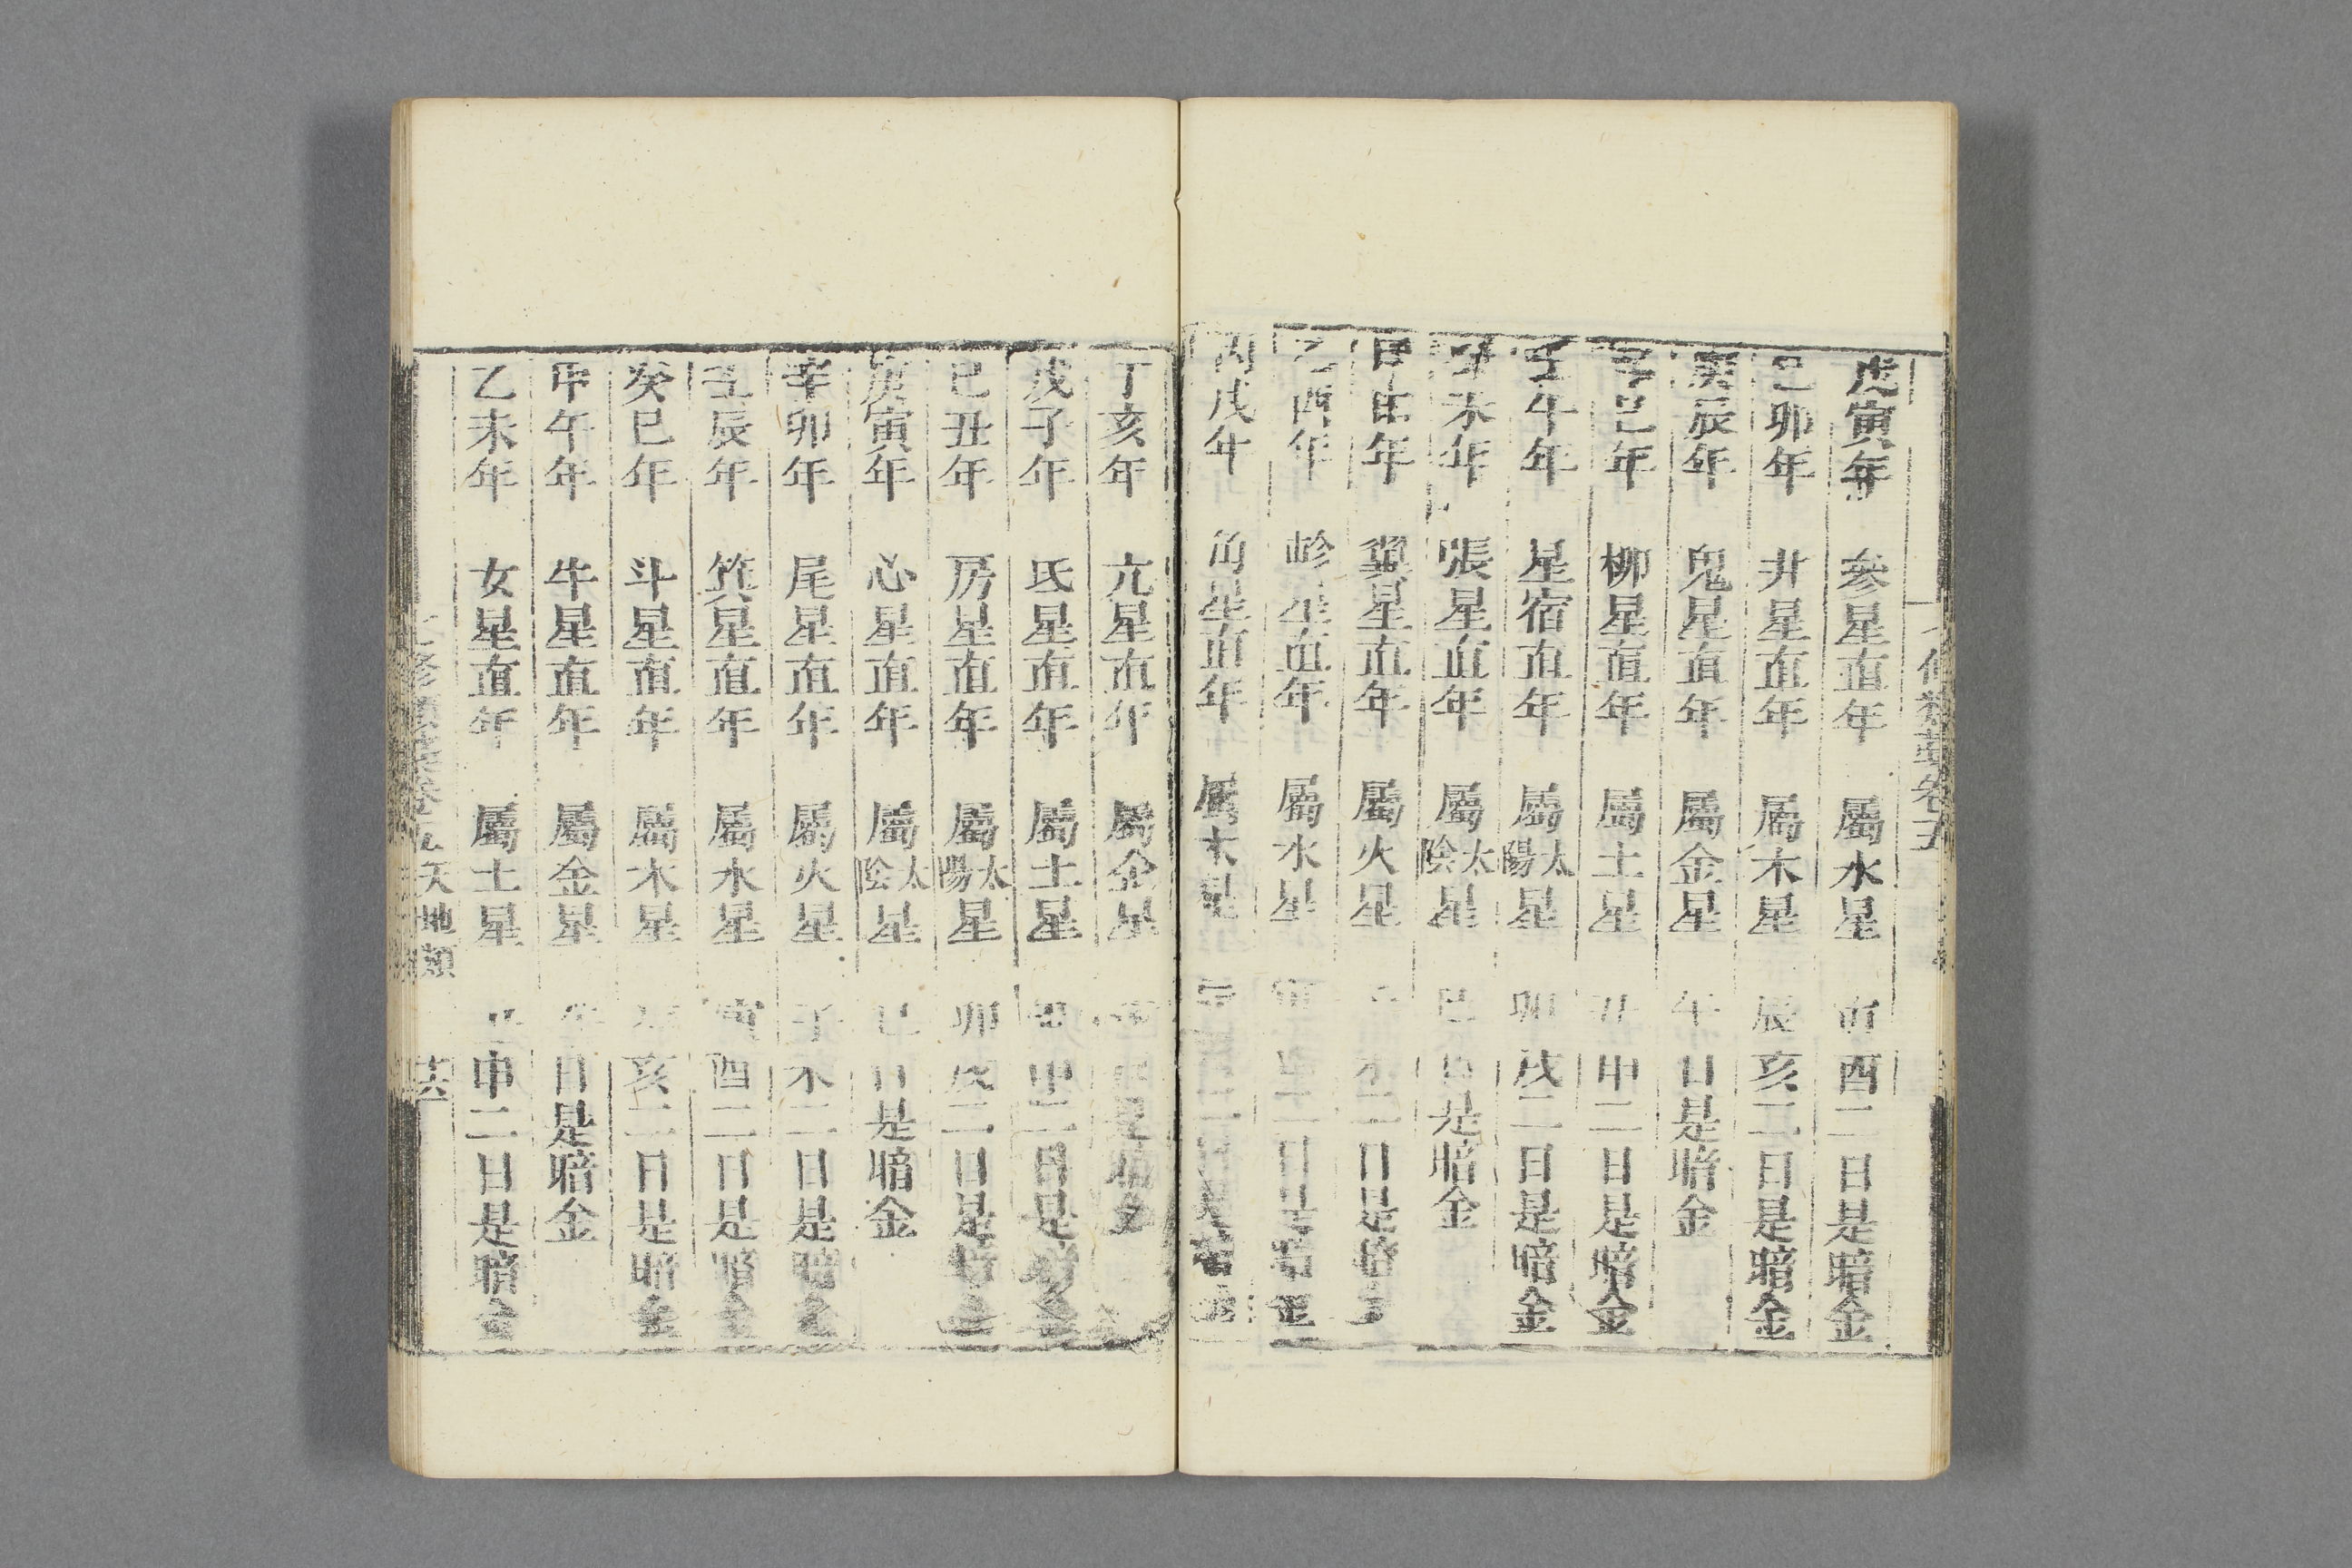 修類藁卷五
戊寅年 參星直年 屬水星 寅酉二日是暗金
己卯年 井星直年 屬木星 辰亥二日是暗金
庚辰年 鬼星直年 屬金星 午日是暗金
辛巳年 柳星直年 屬土星 丑申二日是暗金
壬午年 星宿直年 屬太陽星 卯戌二日是暗金
癸未年 張星直年 屬太陰星 巳日是暗金
甲申年 翼星直年 屬火星 二日是暗
乙酉年 軫星直年 屬水星 寅二日是暗金
丙戌年 角星直年 屬木星 二日是暗金
丁亥年 亢星直年 屬金星 是暗金
戊子年 氐星直年 屬土星 申二日是暗金
己丑年 房星直年 屬太陽星 卯戌二日是暗金
庚寅年 心星直年 屬太陰星 巳日是暗金
辛卯年 尾星直年 屬火星 子未二日是暗金
壬辰年 箕星直年 屬水星 寅酉二日是暗金
癸巳年 斗星直年 屬木星 亥二日是暗金
甲午年 牛星直年 屬金星 午日是暗金
乙未年 女星直年 屬土星 丑申二日是暗金
七修類藁卷五 天地類 廿六